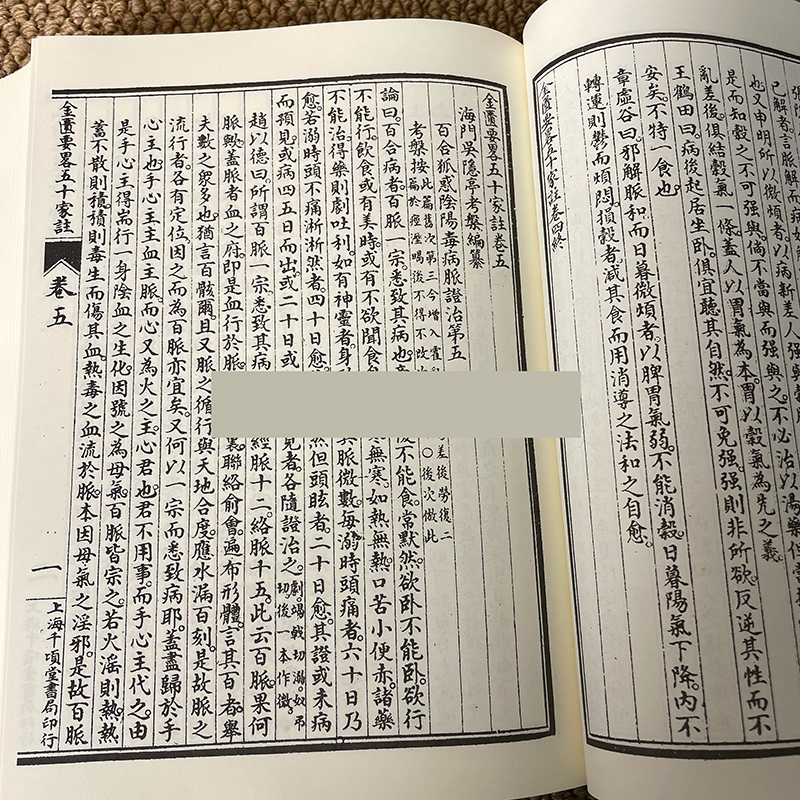 已解者言脈解而病如
也又申明所以微煩者以病新差人強與穀
是而知穀之不可強與倘不當與而強與之不必治以湯藥
亂差後俱結穀氣一條蓋人以胃氣為本胃以穀氣為先之義
王鶴田曰病後起居坐臥俱宜聽其自然不可免强强則非所欲反逆其性而不
安矣不特一食也
章虛谷曰邪解脈和而日暮微煩者以脾胃氣弱不能消穀日暮陽氣下降內不
轉運則鬱而煩悶損穀者減其食而用消導之法和之自愈
金匱要畧五十家註卷四終
金匱要畧五十家註卷五
海門吳隱亭考槃編纂
百合狐惑陰陽毒病脈證治第五
考槃按此篇舊次第三今增入霍 差後勞復二
篇於痙溼暍後不得不改 ○後次倣此
論曰百合病者百脈一宗悉致其病也 不能食常默然欲臥不能臥欲行
不能行飲食或有美時或有不欲聞食 寒無寒如熱無熱口苦小便赤諸藥
不能治得藥則劇吐利如有神靈者身 其脈微數每溺時頭痛者六十日乃
愈若溺時頭不痛淅淅然者四十日愈 然但頭眩者二十日愈其證或未病
而預見或病四五日而出或二十日或 見者各隨證治之
趙以德曰所謂百脈一宗悉致其病 經脈十二絡脈十五此云百脈果何
脈歟蓋脈者血之府即是血行於脈 裏聯絡俞會遍布形體言其百者舉
夫數之衆多也猶言百骸爾且又脈之循行與天地合度應水漏百刻是故脈之
流行者各有定位因之而為百脈亦宜矣又何以一宗而悉致病耶蓋盡歸於手
心主也手心主主血主脈而心又為火之主心君也君不用事而手心主代之由
是手心主得耑行一身陰血之生化因號之為母氣百脈皆宗之若火淫則熱熱
蓄不散則積積則毒生而傷其血熱毒之血流於脈本因母氣之淫邪是故百脈
金匱要畧五十家註
卷五
一
上海千頃堂書局印行